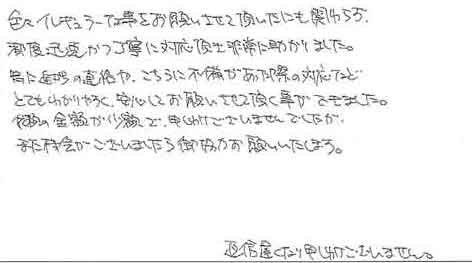 色々イレギュラーな事をお願いさせて頂いたにも関わらず、
都度迅速かつ丁寧に対応頂き非常に助かりました。
の返信や、こちらに不備があった際の対応など
とてもわかりやすく、安心してお願いさせて頂く事ができました。
の金額が少額で、申しわけございませんでしたが、
また機会がございましたら御協力お願いいたします。
返信遅くなり申しわけございません。